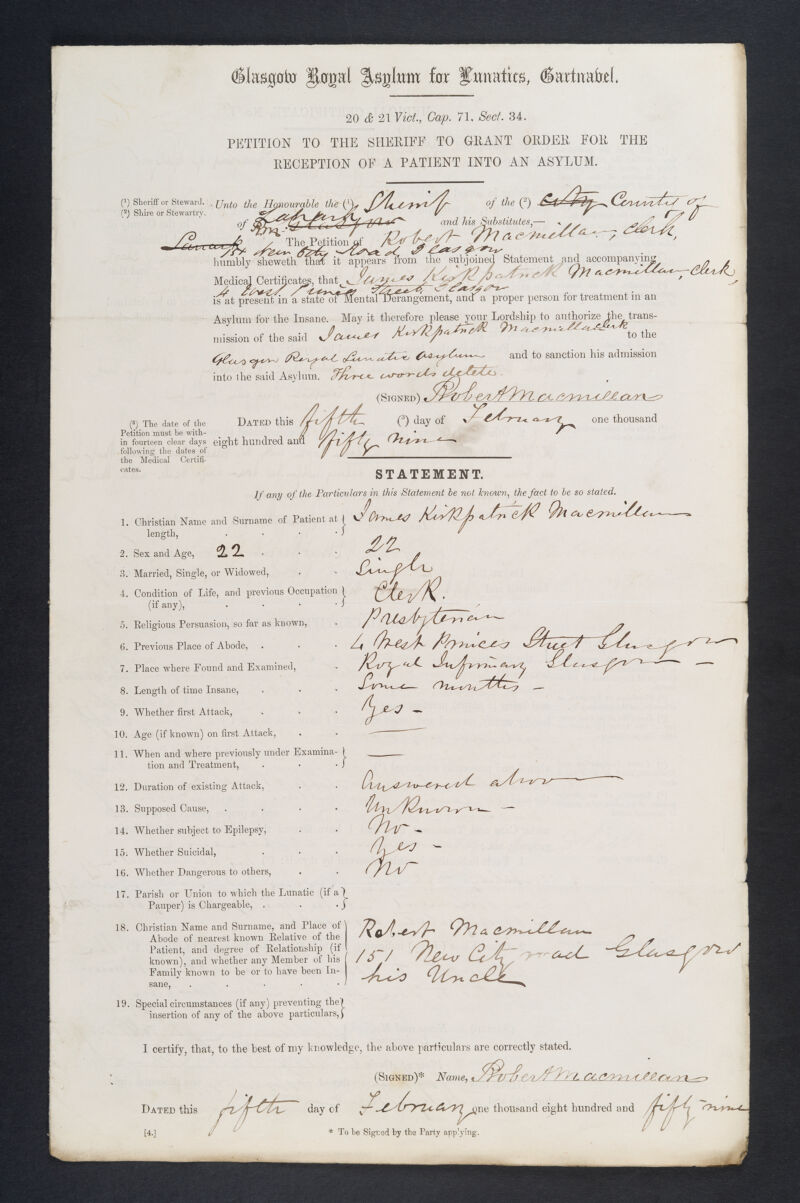 Glasgow Royal Asylum for Lunatics, Gartnabel.
20 & 21 Vict., Cap. 71. Sect. 34.
PETITION TO THE SHERIFF TO GRANT ORDER FOR THE
RECEPTION OF A PATIENT INTO AN ASYLUM.
(¹) Sheriff or Steward.
(²) Shire or Stewartry.
Unto the Honourable the (¹) Sheriff of the (²) City County of
of Lanark and his Substitutes,—
Lanark The Petition of Robert Macmillan, Clerk,
151 New City Road Glasgow
humbly sheweth that it appears from the subjoined Statement and accompanying
Medical Certificates, that James Kirkpatrick Macmillan, Clerk,
4 West Princes Street Glasgow
is at present in a state of Mental Derangement, and a proper person for treatment in an
Asylum for the Insane. May it therefore please your Lordship to authorize the trans-
mission of the said James Kirkpatrick Macmillan Clerk to the
Glasgow Royal Lunatic Asylum and to sanction his admission
into the said Asylum. Three words delete.
(SIGNED) Robert Macmillan
(³) The date of the
Petition must be with-
in fourteen clear days
following the dates of
the Medical Certifi-
cates.
DATED this fifth (³) day of February one thousand
eight hundred and fifty nine
STATEMENT.
If any of the Particulars in this Statement be not known, the fact to be so stated.
1. Christian Name and Surname of Patient at length, James Kirkpatrick Macmillan
2. Sex and Age, 22 22
3. Married, Single, or Widowed, Single
4. Condition of Life, and previous Occupation (if any), Clerk.
5. Religious Persuasion, so far as known, Presbyterian
6. Previous Place of Abode, 4 West Princes Street Glasgow
7. Place where Found and Examined, Royal Infirmary Glasgow —
8. Length of time Insane, Some months —
9. Whether first Attack, Yes —
10. Age (if known) on first Attack, —
11. When and where previously under Examina-
tion and Treatment, —
12. Duration of existing Attack, Answered above
13. Supposed Cause, Unknown —
14. Whether subject to Epilepsy, No —
15. Whether Suicidal, Yes —
16. Whether Dangerous to others, No
17. Parish or Union to which the Lunatic (if a
Pauper) is Chargeable,
18. Christian Name and Surname, and Place of
Abode of nearest known Relative of the
Patient, and degree of Relationship (if
known), and whether any Member of his
Family known to be or to have been In-
sane,
Robert Macmillan
151 New City road Glasgow
his Uncle
19. Special circumstances (if any) preventing the
insertion of any of the above particulars,
I certify, that, to the best of my knowledge, the above particulars are correctly stated.
(SIGNED)* Name, Robert Macmillan
DATED this fifth day of February one thousand eight hundred and fifty nine
[4.]
* To be Signed by the Party applying.